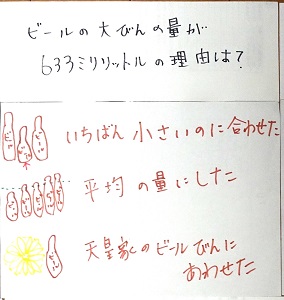 ビールの大びんの量が
633ミリリットルの理由は?
いちばん小さいのに合わせた
平均の量にした
天皇家のビールびんに
あわせた